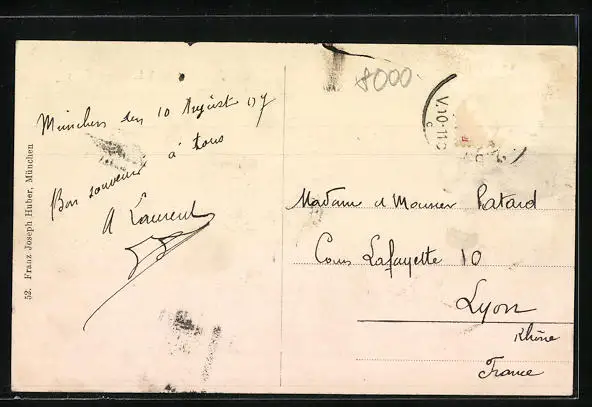 8000
V.10-11
München den 10 August 07
Bon souvenir à tous
A Laurent
Madame et Monsieur Patard
Cours Lafayette 10
Lyon
Rhône
France
52. Franz Joseph Huber, München